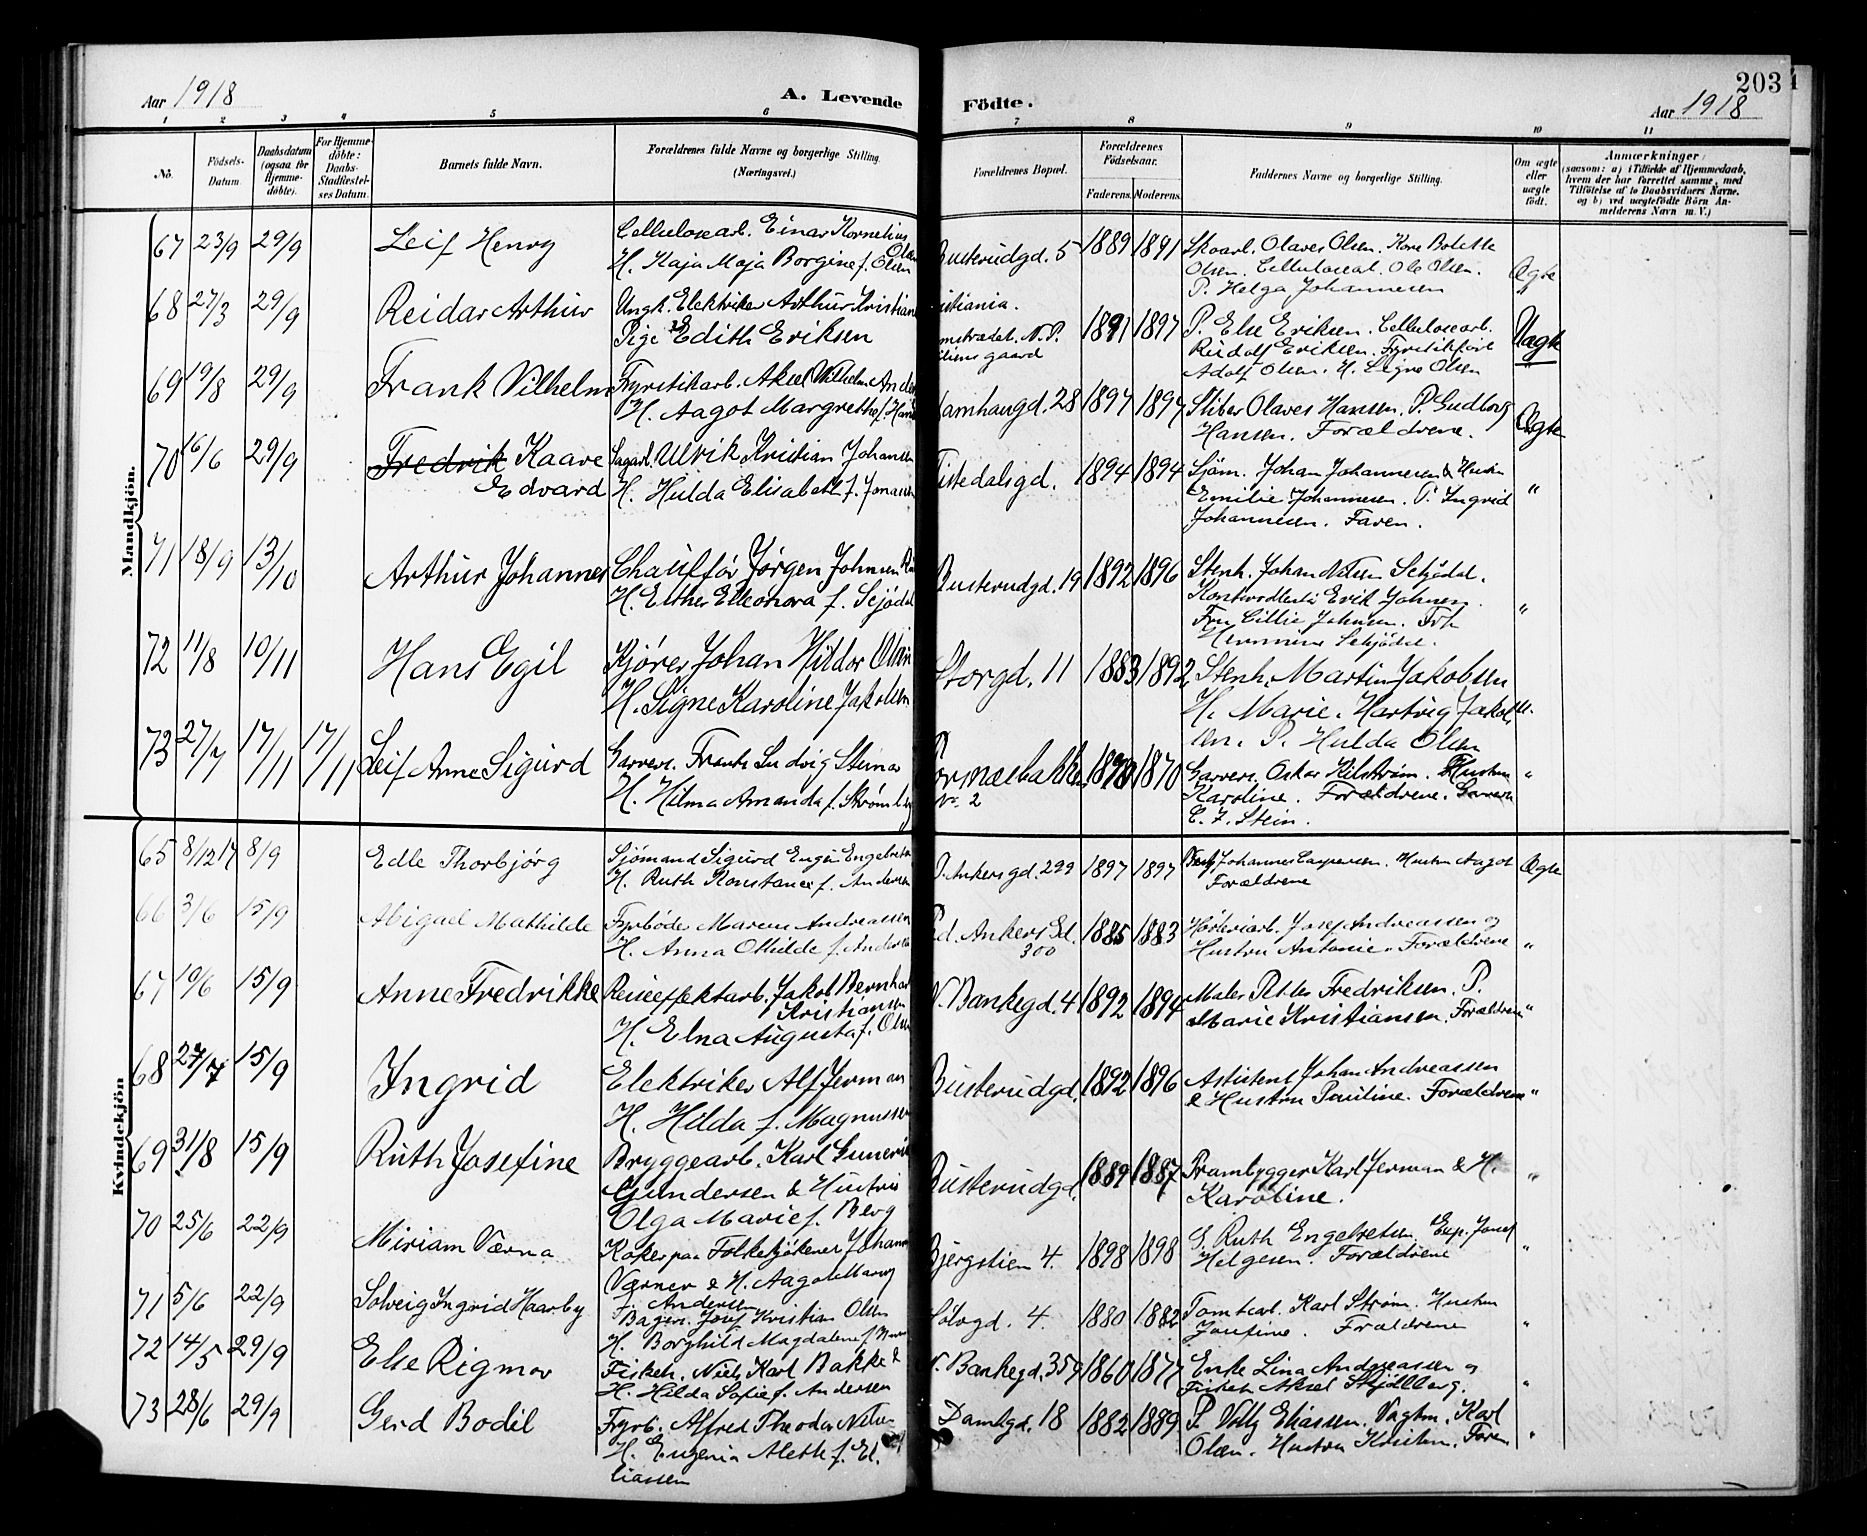 203
Aar 1918
A. Levende Födte.
Aar 1918
1 2 3 4 5 6 7 8 9 10 11
No. Födsels-Datum. Daabsdatum (ogsaa for Hjemmedöbte). For Hjemmedöbte: Daabs-Stadfæstelses Datum. Barnets fulde Navn. Forældrenes fulde Navne og borgerlige Stilling. (Næringsvei.) Forældrenes Bopæl. Forældrenes Födselsaar. Faderens. Moderens. Faddernes Navne og borgerlige Stilling. Om ægte eller uægte födt. Anmærkninger
(saasom: a) i Tilfælde af Hjemmedaab, hvem der har forrettet samme, med Tilföielse af to Daabsvidners Navne, og b) ved uægtefödte Börn Anmelderens Navn m. V.)
Mandkjön.
67 23/9 29/9 Leif Henry Cellulosearb. Einar Kornelius Olsen
H. Kaja Maja Borgine f. Olsen
Busterudgd. 5 1889 1891 Skoarb. Olaves Olsen. Kore Bolette
Olsen. Cellulosearb. Ole Olsen.
P. Helga Johannesen Ægte
68 27/3 29/9 Reidar Arthur Ungk. Elektriker Arthur Kristian
Pige Edith Eriksen
1891 1897 P. Else Eriksen. Cellulosearb.
Rudolf Eriksen. Fyrstikarb.
Adolf Olsen. H. Signe Olsen Uægte
69 19/8 29/9 Frank Vilhelm Fyrstikarb. Aksel Vilhelm
H. Aagot Margrethe f.
Damhaugd. 28 1897 1897 Sliber Olaves Hansen. P. Gudborg
Hansen. Forældrene. Ægte
70 16/6 29/9 Fredrik Kaare
Edvard
Sagarb. Ulrik Kristian Johansen
H. Hulda Elisabeth f.
Tistedalsgd. 1894 1894 Sjöm. Johan Johannesen & Hustru
Emilie Johannesen. P. Ingrid
Johannesen. Faren. "
71 18/9 13/10 Arthur Johannes Chauffør Jørgen Johnsen
H. Esther Elleonora f. Sejödal
Busterudgd. 19 1892 1896 Stenh. Johan Nilsen Sejödal.
Erik Johnsen.
Fru Cillie Johnsen. "
72 11/8 10/11 Hans Egil Kjører Johan Hildor Olsen
H. Signe Karoline Jakobsen
Storgd. 11 1883 1892 Stenh. Martin Jakobsen
H. Marie. Hartvig Jakob
sen. P. Hulda Olsen "
73 27/7 17/11 17/11 Leif Arne Sigurd Garver. Frants Ludvig
H. Hilma Amanda f. Strømberg
No. 2 1870 Garver. Oskar Kilstrøm. Hustru
Karoline. Forældrene. "
Kvindekjön
65 8/12 17 8/9 Edle Thorbjörg Sjömand Sigurd Engebretsen
H. Ruth Konstance f. Andersen
P. Ankersgd. 299 1897 1897 Johannes Caspersen. Hustru Aagot
Forældrene Ægte
66 3/6 15/9 Abigael Mathilde Fyrböder Marcus Andreassen
H. Anna Othilde f. Andersen
Pd. Ankers Gd.
300 1885 1883 Josef Andreassen og
Hustru Antonie. Forældrene "
67 19/6 15/9 Anne Fredrikke Reiseeffektarb. Jakob Bernhard
Kristiansen
H. Elna Augusta f. Olsen
N. Bankegd. 4 1892 1894 Maler Fredriksen. P.
Marie Kristiansen. Forældrene "
68 27/7 15/9 Ingrid Elektriker Alf Jerman
H. Hilda f. Magnussen
Busterudgd. 1892 1896 Assistent Johan Andreassen
& Hustru Pauline. Forældrene "
69 31/8 15/9 Ruth Josefine Bryggearb. Karl
Gundersen & Hustru
Olga Marie f. Berg
Busterudgd. 1889 1887 Prambygger Karl Jerman & H.
Karoline. "
70 25/6 22/9 Miriam Værna Koker paa Folkekjökenet Johan
Værner & H. Aagot Mary
f. Andersen
Bjergstien 4. 1898 1898 Ruth Engebretsen Exp. Josef
Helgesen. Forældrene "
71 5/6 22/9 Solveig Ingrid Haarby Bager. Josef Kristian Olsen
H. Borghild Magdalene f.
4. 1880 1882 Tomtearb. Karl Strøm. Hustru
Josefine. Forældrene "
72 14/5 29/9 Else Rigmor Fisken. Niels Karl Bakke &
H. Hilda Sofie f. Andersen
N. Bankegd. 359 1860 1877 Enke Lina Andreassen og
Aksel Skjölberg. "
73 28/6 29/9 Gerd Bodil Fyrb. Alfred Theodor
H. Eugenia Aleth f. El.
liassen
Damgd. 18 1882 1889 P. Eliassen. Vagtm. Karl
Olsen. Hustru "